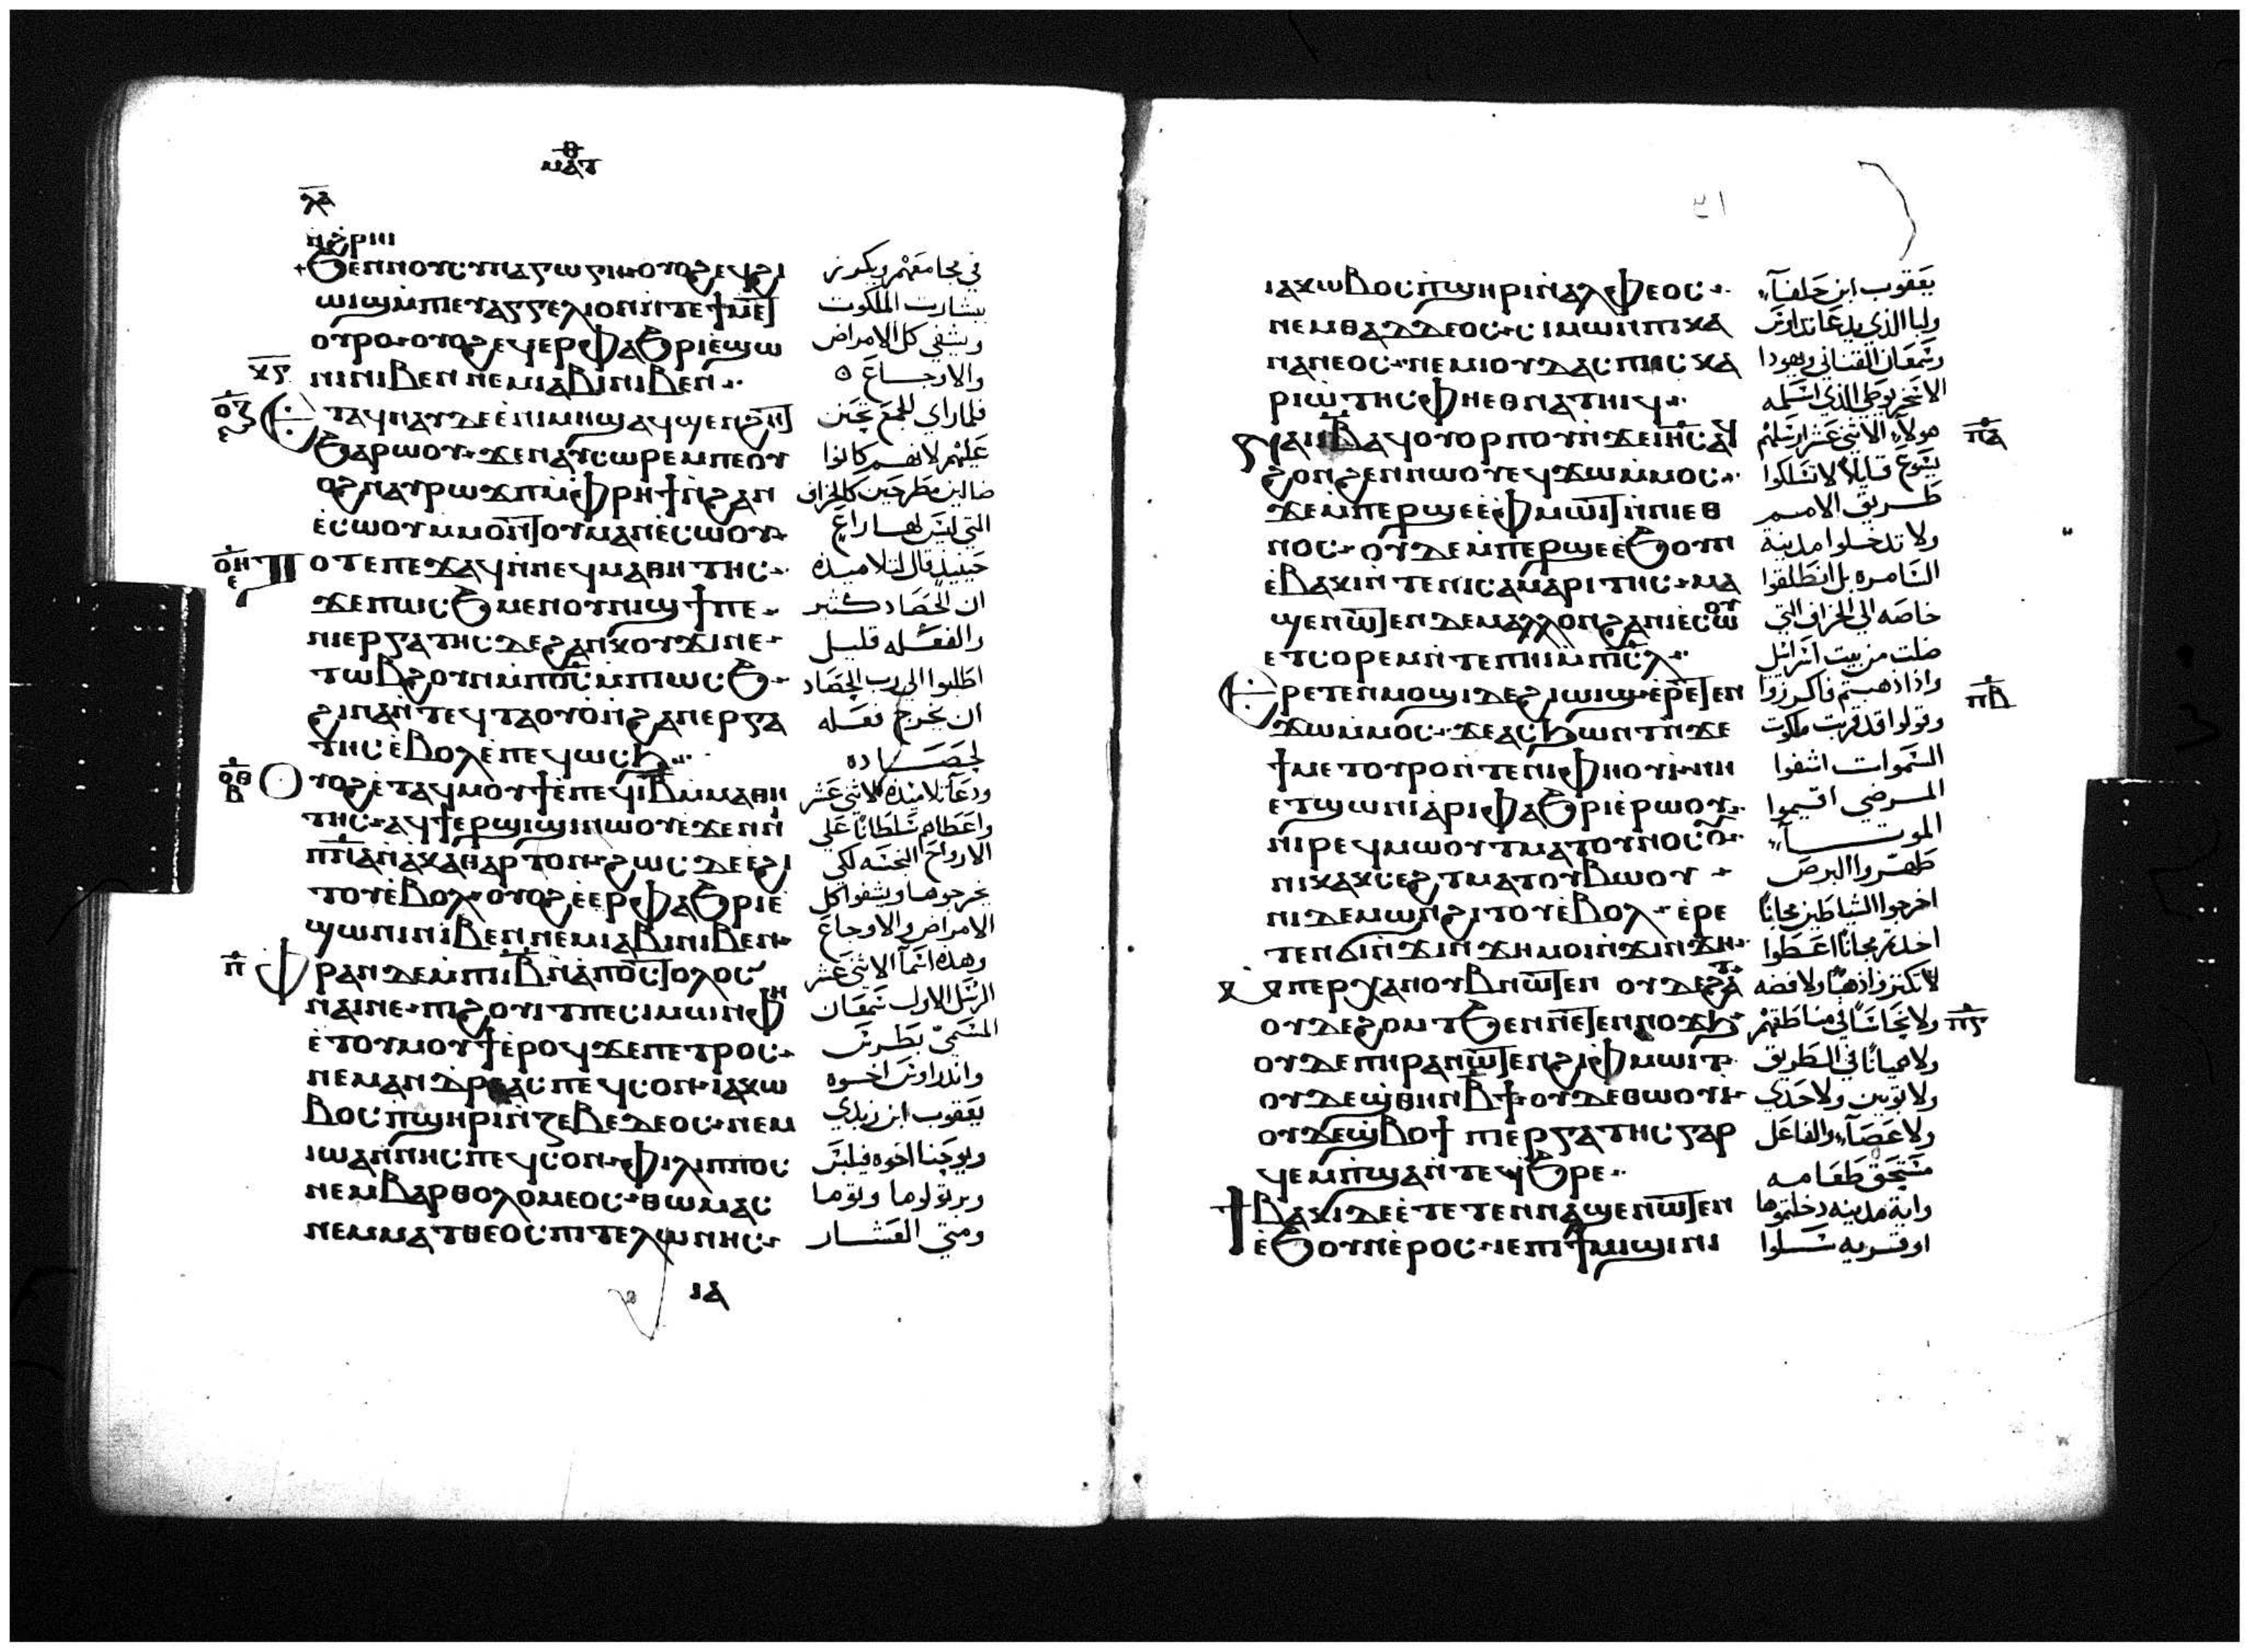 ⲙⲁⲧ
ⲗⲁ
ϧⲉⲛⲛⲟⲩⲥⲩⲛⲁⲅⲱⲅⲏ ⲟⲩⲟϩⲉϥϩⲓ
ⲱⲓϣⲙⲡⲓⲉⲩⲁⲅⲅⲉⲗⲓⲟⲛⲛⲧⲉϯⲙⲉⲧ
ⲟⲩⲣⲟ ⲟⲩⲟϩⲉϥⲉⲣⲫⲁϧⲣⲓⲉϣⲱ
ⲛⲓⲛⲓⲃⲉⲛ ⲛⲉⲙⲓⲁⲃⲓⲛⲓⲃⲉⲛ
ⲉⲧⲁϥⲛⲁⲩⲇⲉⲉⲛⲓⲙⲏϣⲁϥϣⲉⲛϩⲏⲧ
ϧⲁⲣⲱⲟⲩ ϫⲉⲛⲁⲩⲥⲱⲣⲉⲙⲡⲉⲟⲩ
ⲟϩⲛⲁⲩⲣⲱϫⲡⲙⲫⲣⲏϯⲛϩⲁⲛ
ⲉⲥⲱⲟⲩⲙⲙⲟⲛⲧⲟⲩⲙⲁⲛⲉⲥⲱⲟⲩ
ⲧⲟⲧⲉⲡⲉϫⲁϥⲛⲛⲉϥⲙⲁⲑⲏⲧⲏⲥ
ϫⲉⲡⲱⲥϧⲙⲉⲛⲟⲩⲛⲓϣϯⲡⲉ
ⲛⲓⲉⲣⲅⲁⲧⲏⲥⲇⲉϩⲁⲛⲕⲟⲩϫⲓⲛⲉ
ⲧⲱⲃϩⲟⲩⲛⲙⲡⲟⲥⲙⲡⲓⲱⲥϧ
ϩⲓⲛⲁⲛⲧⲉϥⲧⲁⲟⲩⲟⲛϩⲁⲛⲉⲣⲅⲁ
ⲧⲏⲥⲉⲃⲟⲗⲉⲡⲉϥⲱⲥϧ
ⲟⲩⲟϩⲉⲧⲁϥⲙⲟⲩϯⲉⲡⲉϥⲓⲃⲙⲙⲁⲑⲏ
ⲧⲏⲥ ⲁϥϯⲉⲣϣⲓϣⲓⲛⲱⲟⲩⲉϫⲉⲛⲛⲓ
ⲡⲛⲁⲛⲁⲕⲁⲑⲁⲣⲧⲟⲛ ϩⲱⲥⲇⲉⲉϩⲓ
ⲧⲟⲩⲉⲃⲟⲗ ⲟⲩⲟϩⲉⲉⲣⲫⲁϧⲣⲓⲉ
ϣⲱⲛⲓⲛⲓⲃⲉⲛⲛⲉⲙⲓⲁⲃⲓⲛⲓⲃⲉⲛ
ⲫⲣⲁⲛⲇⲉⲙⲡⲓⲓⲃⲛⲁⲡⲟⲥⲧⲟⲗⲟⲥ
ⲛⲁⲓⲛⲉ ⲡⲓϩⲟⲩⲓⲧⲡⲉⲥⲓⲙⲱⲛⲫⲏ
ⲉⲧⲟⲩⲙⲟⲩϯⲉⲣⲟϥϫⲉⲡⲉⲧⲣⲟⲥ
ⲛⲉⲙⲁⲛⲇⲣⲉⲁⲥⲡⲉϥⲥⲟⲛ ⲓⲁⲕⲱ
ⲃⲟⲥⲡϣⲏⲣⲓⲛⲍⲉⲃⲉⲇⲉⲟⲥ ⲛⲉⲙ
ⲓⲱⲁⲛⲛⲏⲥⲡⲉϥⲥⲟⲛ ⲫⲓⲗⲓⲡⲡⲟⲥ
ⲛⲉⲙⲃⲁⲣⲑⲟⲗⲟⲙⲉⲟⲥ ⲑⲱⲙⲁⲥ
ⲛⲉⲙⲙⲁⲧⲑⲉⲟⲥⲡⲓⲧⲉⲗⲱⲛⲏⲥ
في مجامعهم ويكرز
ببشارت الملكوت
ويشفي كل الامراض
والاوجاع
فلما راي الجمع تحنن
عليهم لانهم كانوا
ضالين مطرحين كالخراف
التي ليس لها راع
حينيذ قال لتلاميذه
ان الحصاد كثير
والفعله قليل
اطلبوا الي رب الحصاد
ان يخرج فعله
لحصاده
ودعا تلاميذه الاثني عشر
واعطاهم سلطانا علي
الارواح النجسه لكي
يخرجوها ويشفوا كل
الامراض والاوجاع
وهذه اسما الاثني عشر
الرسل الاول سمعان
المسمي بطرس
واندراوس اخوه
يعقوب ابن زبدي
ويوحنا اخوه فيلبس
وبرتولوما وتوما
ومتي العشار
ⲓⲁ
ⲓⲁⲕⲱⲃⲟⲥⲡϣⲏⲣⲓⲛⲁⲗⲫⲉⲟⲥ
ⲛⲉⲙⲑⲁⲇⲇⲉⲟⲥ ⲥⲓⲙⲱⲛⲡⲓⲕⲁ
ⲛⲁⲛⲉⲟⲥ ⲛⲉⲙⲓⲟⲩⲇⲁⲥⲡⲓⲥⲕⲁ
ⲣⲓⲱⲧⲏⲥⲫⲏⲉⲑⲛⲁⲧⲏⲓϥ
ⲡⲁⲓⲓⲃⲁϥⲟⲩⲟⲣⲡⲟⲩⲛϫⲉⲓⲏⲥⲁϥ
ϩⲟⲛϩⲉⲛⲛⲱⲟⲩⲉϥϫⲱⲙⲙⲟⲥ
ϫⲉⲙⲡⲉⲣϣⲉⲉⲫⲙⲱⲓⲧⲛⲛⲓⲉⲑ
ⲛⲟⲥ ⲟⲩⲇⲉⲙⲡⲉⲣϣⲉⲉϧⲟⲩⲛ
ⲉⲃⲁⲕⲓⲛⲧⲉⲛⲓⲥⲁⲙⲁⲣⲓⲧⲏⲥ ⲙⲁ
ϣⲉⲛⲱⲧⲉⲛⲇⲉⲙⲁⲗⲗⲟⲛϩⲁⲛⲓⲉⲥⲱⲟⲩ
ⲉⲧⲥⲟⲣⲉⲙⲛⲧⲉⲡⲏⲓⲙⲡⲓⲥⲗ
ⲉⲣⲉⲧⲉⲛⲙⲟϣⲓⲇⲉϩⲓⲱⲓϣⲉⲣⲉⲧⲉⲛ
ϫⲱⲙⲙⲟⲥ ϫⲉⲁⲥϧⲱⲛⲧⲛϫⲉ
ϯⲙⲉⲧⲟⲩⲣⲟⲛⲧⲉⲛⲓⲫⲏⲟⲩⲓ ⲛⲏ
ⲉⲧϣⲱⲛⲓⲁⲣⲓⲫⲁϧⲣⲓⲉⲣⲱⲟⲩ
ⲛⲓⲣⲉϥⲙⲱⲟⲩⲧⲙⲁⲧⲟⲩⲛⲟⲥⲟⲩ
ⲛⲓⲕⲁⲕⲥⲉϩⲧⲙⲁⲧⲟⲩⲃⲱⲟⲩ
ⲛⲓⲇⲉⲙⲱⲛϩⲓⲧⲟⲩⲉⲃⲟⲗ ⲉⲣⲉ
ⲧⲉⲛϭⲓⲛϫⲓⲛϫⲏⲙⲟⲓⲛϫⲓⲛϫⲏ
ⲙⲡⲉⲣϫⲁⲛⲟⲩⲃⲛⲱⲧⲉⲛ ⲟⲩⲇⲉϩⲁⲧ
ⲟⲩⲇⲉϩⲟⲙⲧϧⲉⲛⲛⲉⲧⲉⲛⲙⲟϫϧ
ⲟⲩⲇⲉⲡⲏⲣⲁⲛⲱⲧⲉⲛϩⲓⲫⲙⲱⲓⲧ
ⲟⲩⲇⲉϣⲑⲏⲛⲃϯ ⲟⲩⲇⲉⲑⲱⲟⲩⲓ
ⲟⲩⲇⲉϣⲃⲟϯ ⲡⲓⲉⲣⲅⲁⲧⲏⲥⲅⲁⲣ
ϥⲉⲙⲡϣⲁⲛⲧⲉϥϧⲣⲉ
ϯⲃⲁⲕⲓⲇⲉⲉⲧⲉⲧⲉⲛⲛⲁϣⲉⲛⲱⲧⲉⲛ
ⲉϧⲟⲩⲛⲉⲣⲟⲥ ⲓⲉⲡⲓϯⲙⲓϣⲓⲛⲓ
يعقوب ابن حلفا
وليا الذي يدعا تداوس
وسمعان القناني ويهودا
الاسخريوطي الذي اسلمه
هولا الاثني عشر ارسلهم
يسوع قايلا لا تسلكوا
طريق الامم
ولا تدخلوا مدينة
السامره بل انطلقوا
خاصه الي الخراف التي
ضلت من بيت اسرائيل
واذا ذهبتم فاكرزوا
وقولوا قد قربت ملكوت
السموات اشفوا
المرضي اقيموا
الموتا
طهروا البرص
اخرجوا الشياطين مجانا
اخذتم مجانا اعطوا
لا تكنزوا ذهبا ولا فضه
ولا نحاسا في مناطقهم
ولا هميانا في الطريق
ولا ثوبين ولا حذي
ولا عصا والفاعل
مستحق طعامه
واية مدينه دخلتموها
او قريه سلوا
ⲡⲁ
ⲡⲃ
ⲡⲅ